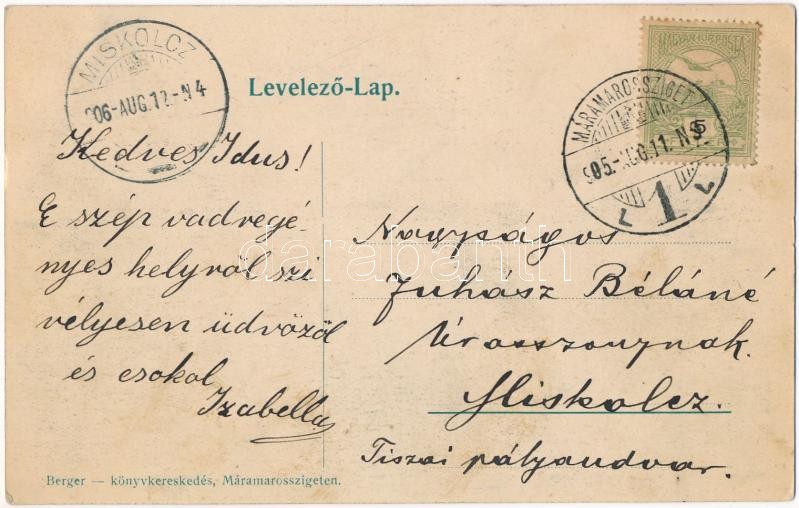 MISKOLCZ
906-AUG.12-N4
Levelező-Lap.
MAGYAR KIR. POSTA
MÁRAMAROSSZIGET
905.-AUG.11.N5
1
Kedves Idus!
E szép vadregé-
nyes helyről szi
vélyesen üdvözöl
és csokol
Izabella
Nagyságos
Juhász Béláné
Úrasszonynak.
Miskolcz.
Tiszai pályaudvar.
darabanth
Berger — könyvkereskedés, Máramarosszigeten.